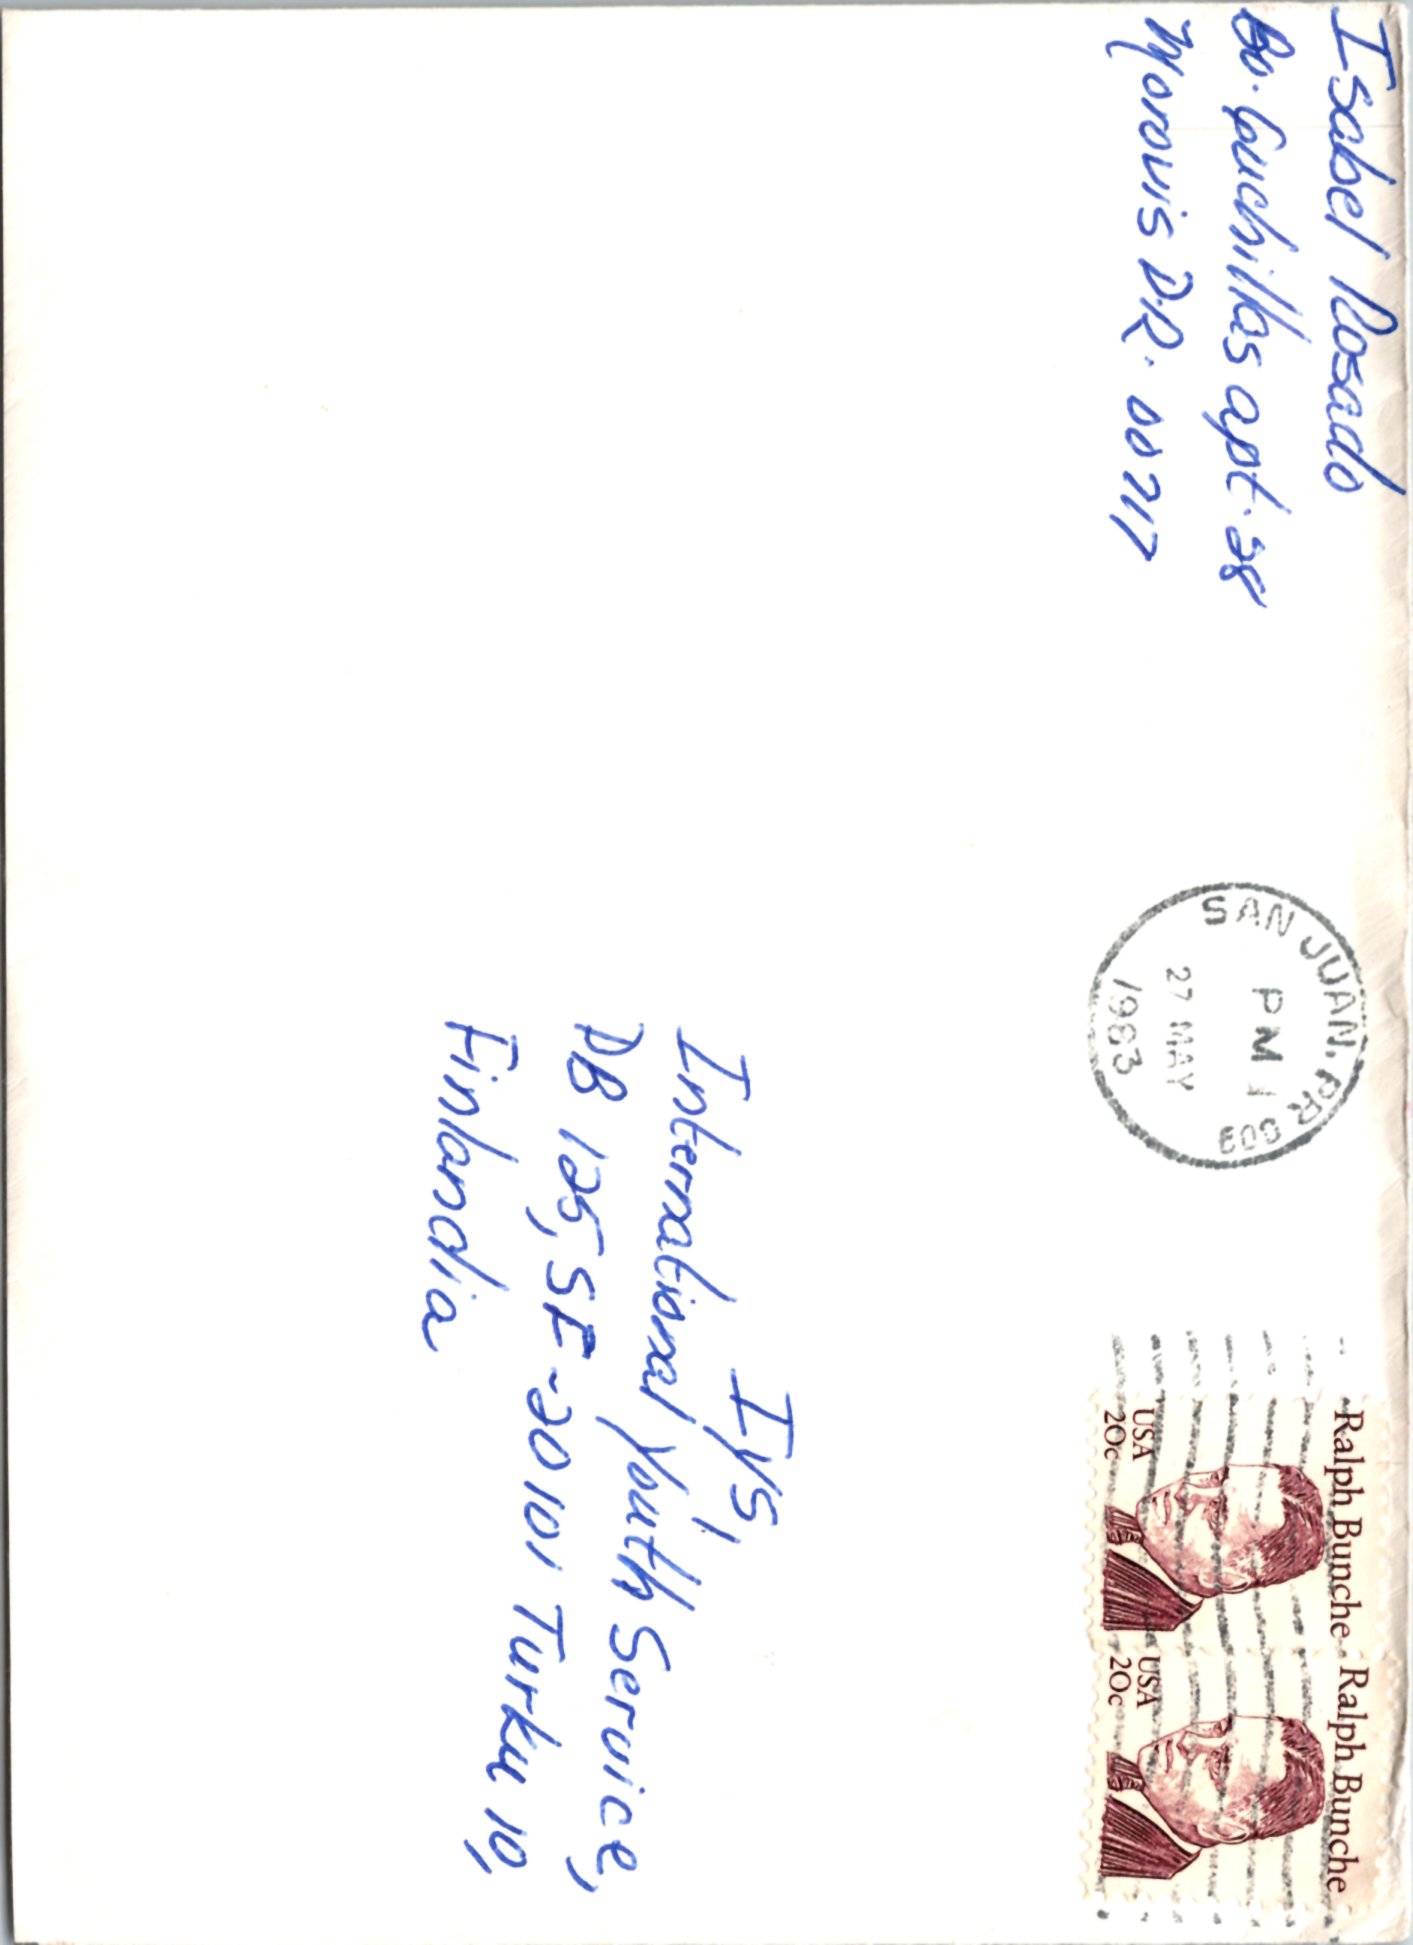 Isabel Rosado
Bo. Cuchillas apt. 28
Morovis P.R. 00717
SAN JUAN, PR 009
PM
27 MAY
1983
Ralph Bunche
USA
20c
Ralph Bunche
USA
20c
IYS,
International Youth Service,
PB 125, SF-20101 Turku 10,
Finlandia